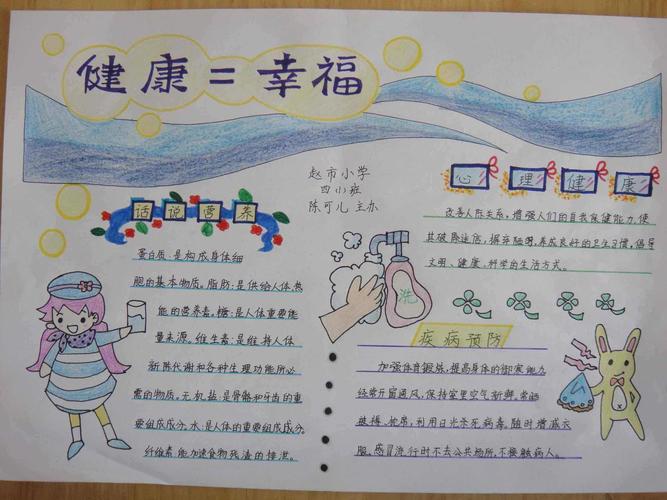 健康=幸福
赵市小学
四(1)班
陈可儿 主办
话说营养
蛋白质:是构成身体细
胞的基本物质。脂肪:是供给人体热
能的营养素。糖:是人体重要能
量来源。维生素:是维持人体
新陈代谢和各种生理功能所必
需的物质。无机盐:是骨骼和牙齿的重
要组成成分。水:是人体的重要组成成分。
纤维素:能加速食物残渣的排泄。
心理健康
改善人际关系,增强人们的自我保健能力,使
其破除迷信,摒弃陋习,养成良好的卫生习惯,倡导
文明、健康、科学的生活方式。
洗
疾病预防
加强体育锻炼,提高身体的御寒能力
经常开窗通风,保持室里空气新鲜。常晒
被褥、地席,利用日光杀死病毒。随时增减衣
服。感冒流行时不去公共场所,不接触病人。